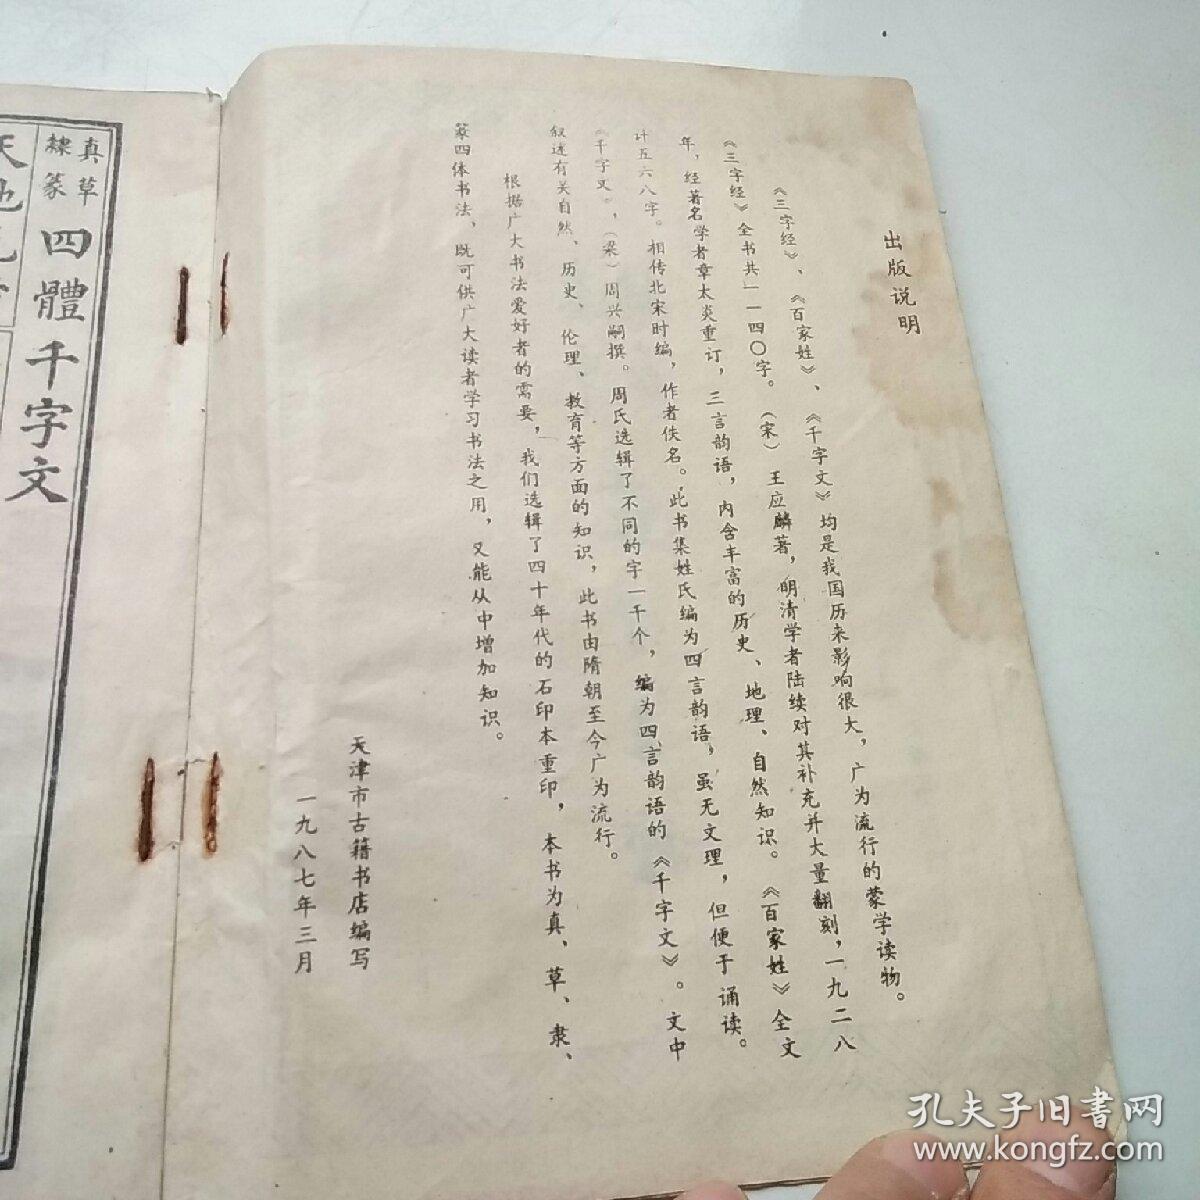 出版说明
《三字经》、《百家姓》、《千字文》均是我国历来影响很大，广为流行的蒙学读物。
《三字经》全书共一一四〇字。（宋）王应麟著，明清学者陆续对其补充并大量翻刻，一九二八
年，经著名学者章太炎重订，三言韵语，内含丰富的历史、地理、自然知识。《百家姓》全文
计五六八字。相传北宋时编，作者佚名。此书集姓氏编为四言韵语，虽无文理，但便于诵读。
《千字文》，（梁）周兴嗣撰。周氏选辑了不同的字一千个，编为四言韵语的《千字文》。文中
叙述有关自然、历史、伦理、教育等方面的知识，此书由隋朝至今广为流行。
根据广大书法爱好者的需要，我们选辑了四十年代的石印本重印，本书为真、草、隶、
篆四体书法，既可供广大读者学习书法之用，又能从中增加知识。
天津市古籍书店编写
一九八七年三月
真草
隸篆
四體千字文
天地
孔夫子旧书网
www.kongfz.com